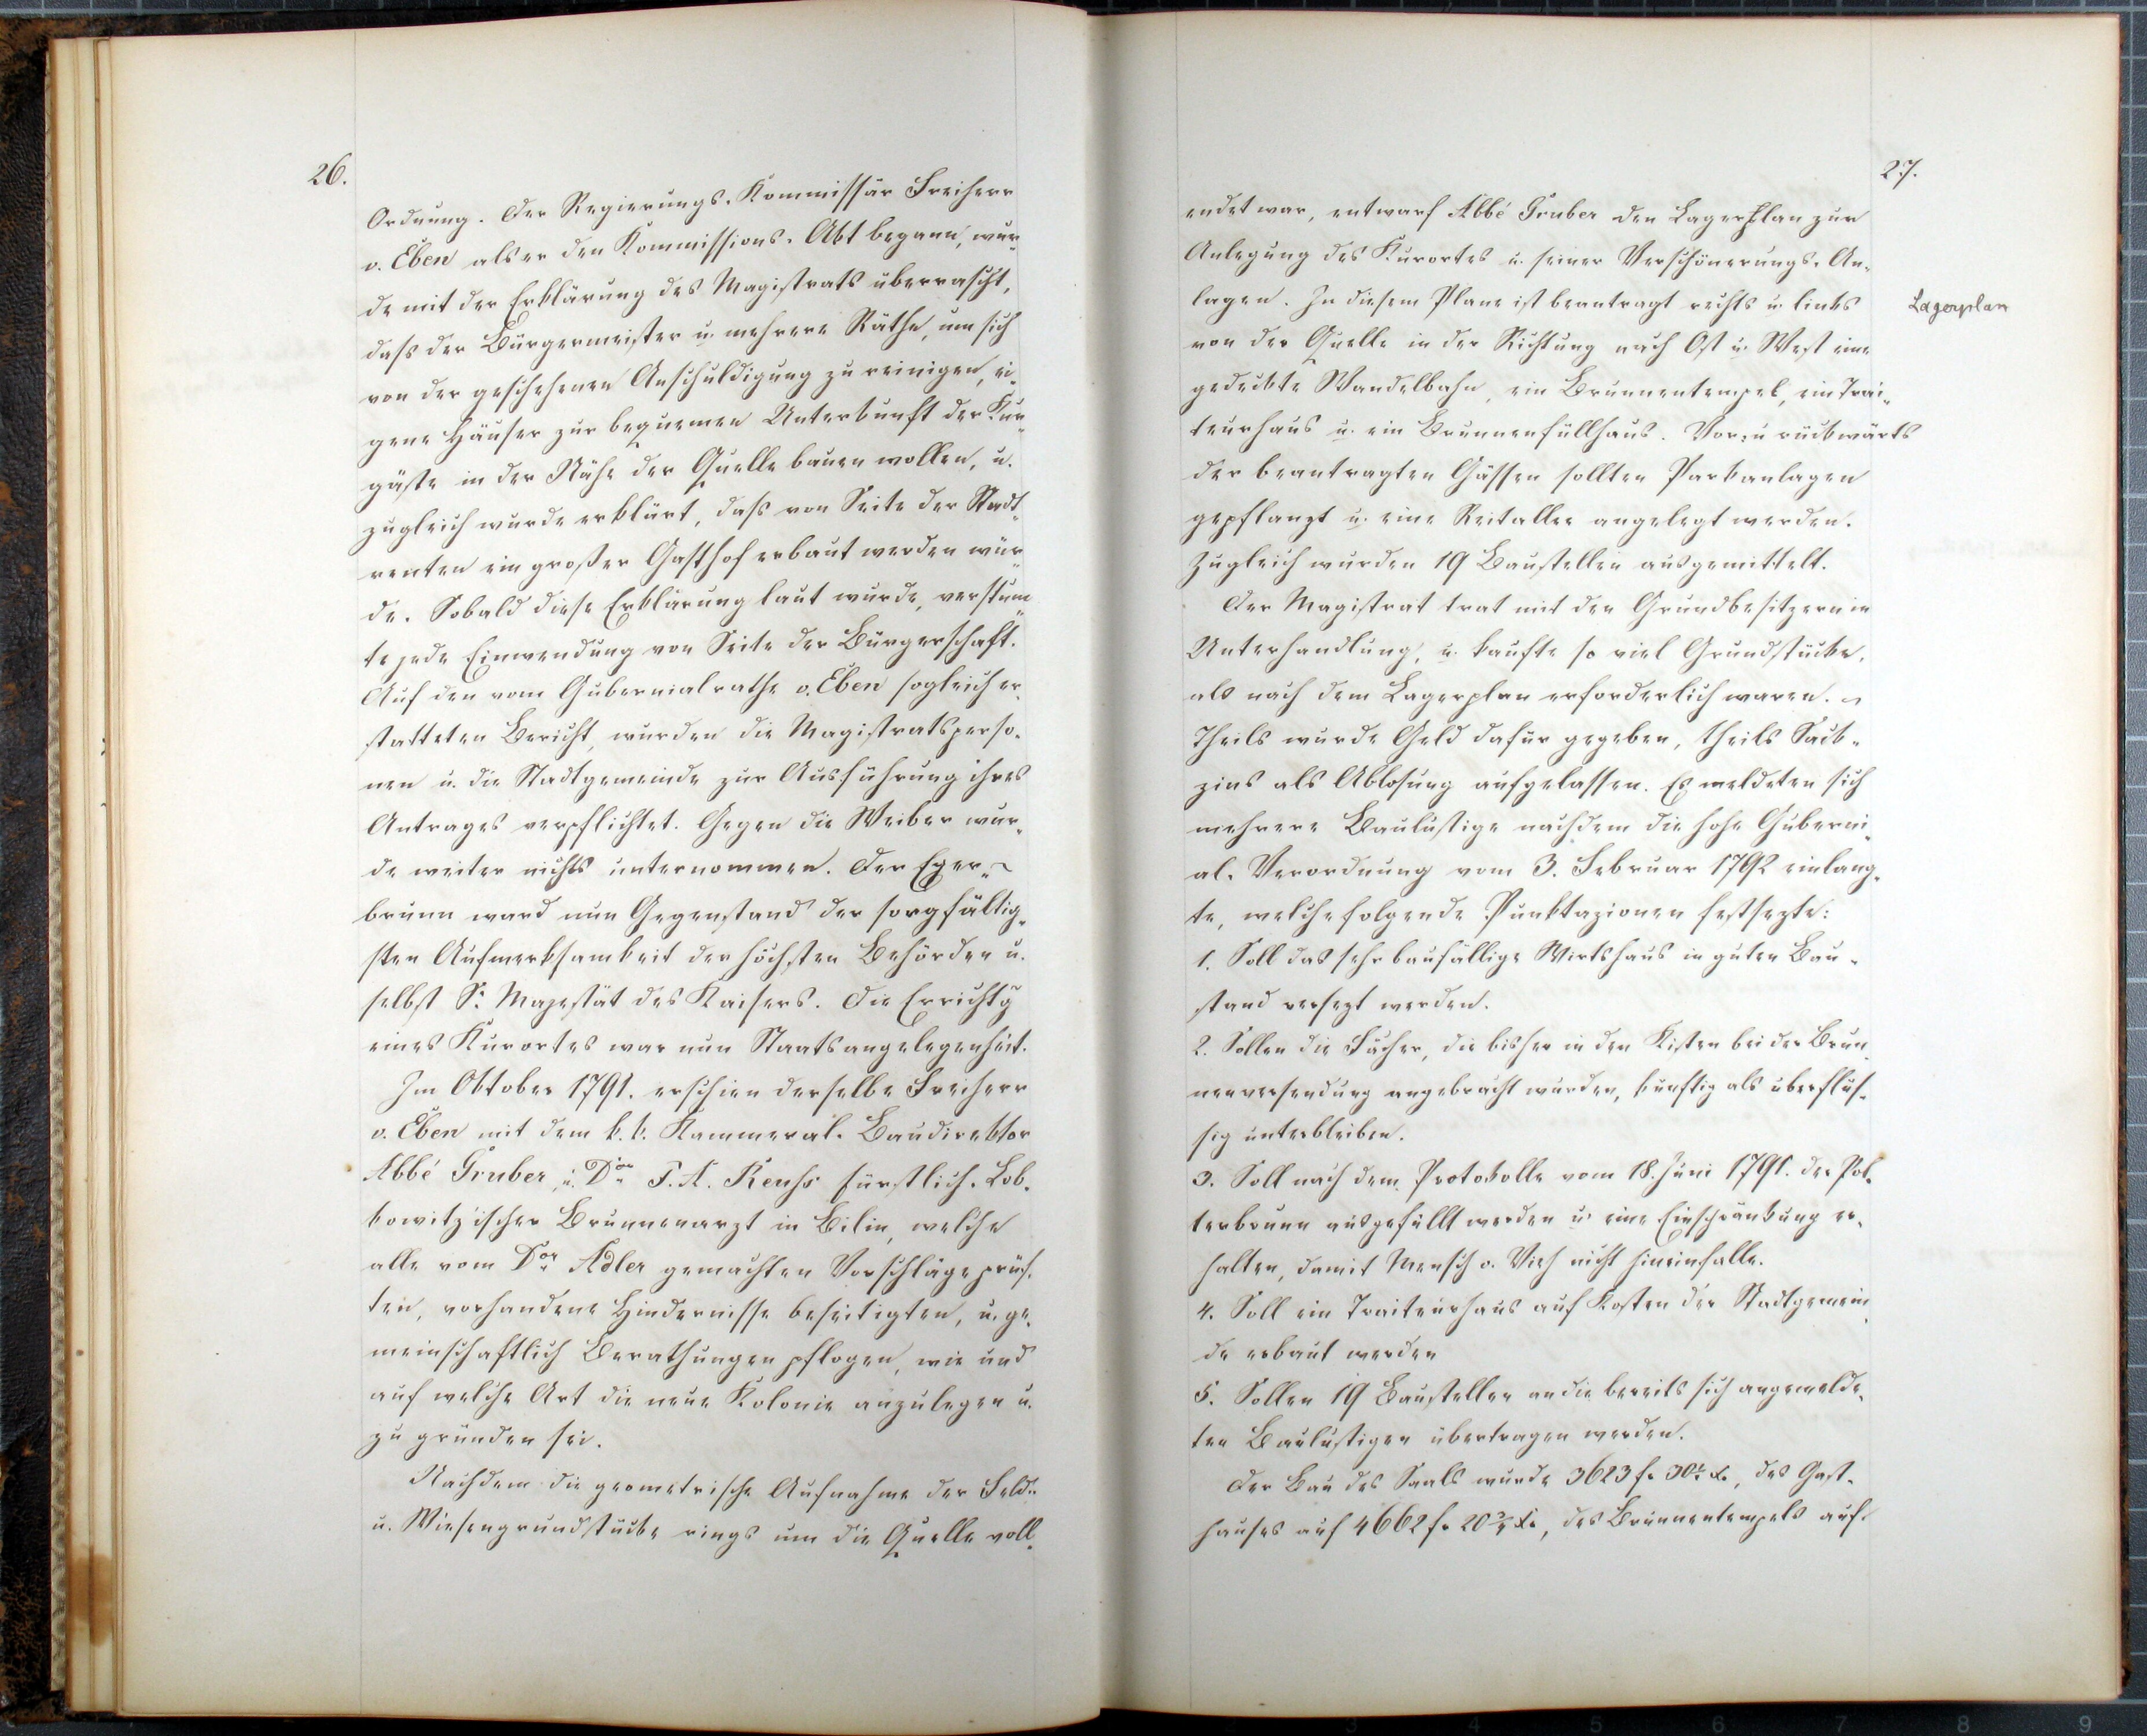 26.
Ordnung. Der Regierungs-Kommissär Freiherr
v. Eben als er den Kommissions-Akt begann, wur-
de mit der Erklärung des Magistrats überrascht,
daß der Bürgermeister u. mehrere Räthe, um sich
von der geschehenen Anschuldigung zu reinigen, ei-
gene Häuser zur bequemen Unterkunft der Kur-
gäste in der Nähe der Quelle bauen wollen, u.
zugleich wurde erklärt, daß von Seite der Stadt-
renten ein großer Gasthof erbaut werden wür-
de. Sobald diese Erklärung laut wurde, verstum-
te jede Einwendung von Seite der Bürgerschaft.
Auf den vom Gubernialrathe v. Eben sogleich er-
statteten Bericht, wurden die Magistratsperso-
nen u. die Stadtgemeinde zur Ausführung ihres
Antrages verpflichtet. Gegen die Weiber wur-
de weiter nichts unternommen. Der Eger-
brunn ward nun Gegenstand der sorgfältig-
sten Aufmerksamkeit der höchsten Behörden u.
selbst Sr. Majestät des Kaisers. Die Errichtg
eines Kurortes war nun Staatsangelegenheit.
Im Oktober 1791. erschien derselbe Freiherr
v. Eben mit dem k. k. Kammeral-Baudirektor
Abbé Gruber, u. Dor F. A. Reuhs fürstlich-Lob-
kowitz'ischer Brunnenarzt in Bilin, welche
alle vom Dor Adler gemachten Vorschläge prüf-
ten, vorhandene Hindernisse beseitigten, u. ge-
meinschaftlich Berathungen pflogen, wie und
auf welche Art die neue Kolonie anzulegen u.
zu gründen sei.
Nachdem die geometrische Aufnahme der Feld-
u. Wiesengrundstücke rings um die Quelle voll-
27.
endet war, entwarf Abbé Gruber den Lagerplan zur
Anlegung des Kurortes u. seiner Verschönerungs-An-
lagen. In diesem Plane ist beantragt rechts u. links
Lagerplan
von der Quelle in der Richtung nach Ost u. West eine
gedeckte Wandelbahn, ein Brunnentempel, ein Trai-
teurhaus u. ein Brunnenfüllhaus. Vor- u rückwärts
der beantragten Gässen sollten Parkanlagen
gepflanzt u. eine Reitallee angelegt werden.
Zugleich wurden 19 Baustellen ausgemittelt.
Der Magistrat trat mit den Grundbesitzern in
Unterhandlung, u. kaufte so viel Grundstücke,
als nach dem Lagerplan erforderlich waren.
Theils wurde Geld dafür gegeben, theils Sack-
zins als Ablosung aufgelassen. Es meldeten sich
mehrere Baulustige nachdem die hohe Guberni-
al-Verordnung vom 3. Februar 1792 einlang-
te, welche folgende Punktazionen festsezte:
1. Soll das sehr baufällige Wirtshaus in guten Bau-
stand versezt werden.
2. Sollen die Fächer, die bisher in den Kisten bei der Brun-
nenversendung angebracht wurden, künftig als überflüs-
sig unterbleiben.
3. Soll nach dem Protokolle vom 18. Juni 1791. der Pol-
terbrunn ausgefüllt werden u. eine Einschränkung er-
halten, damit Mensch o. Vieh nicht hineinfalle.
4. Soll ein Traiteurhaus auf Kosten der Stadtgemein-
de erbaut werden
5. Sollen 19 Baustellen an die bereits sich angemelde-
ten Baulustigen übertragen werden.
Der Bau des Saals wurde 3623 f. 30 x., des Gast-
hauses auf 4662 f. 20 x., des Brunnentempels auf